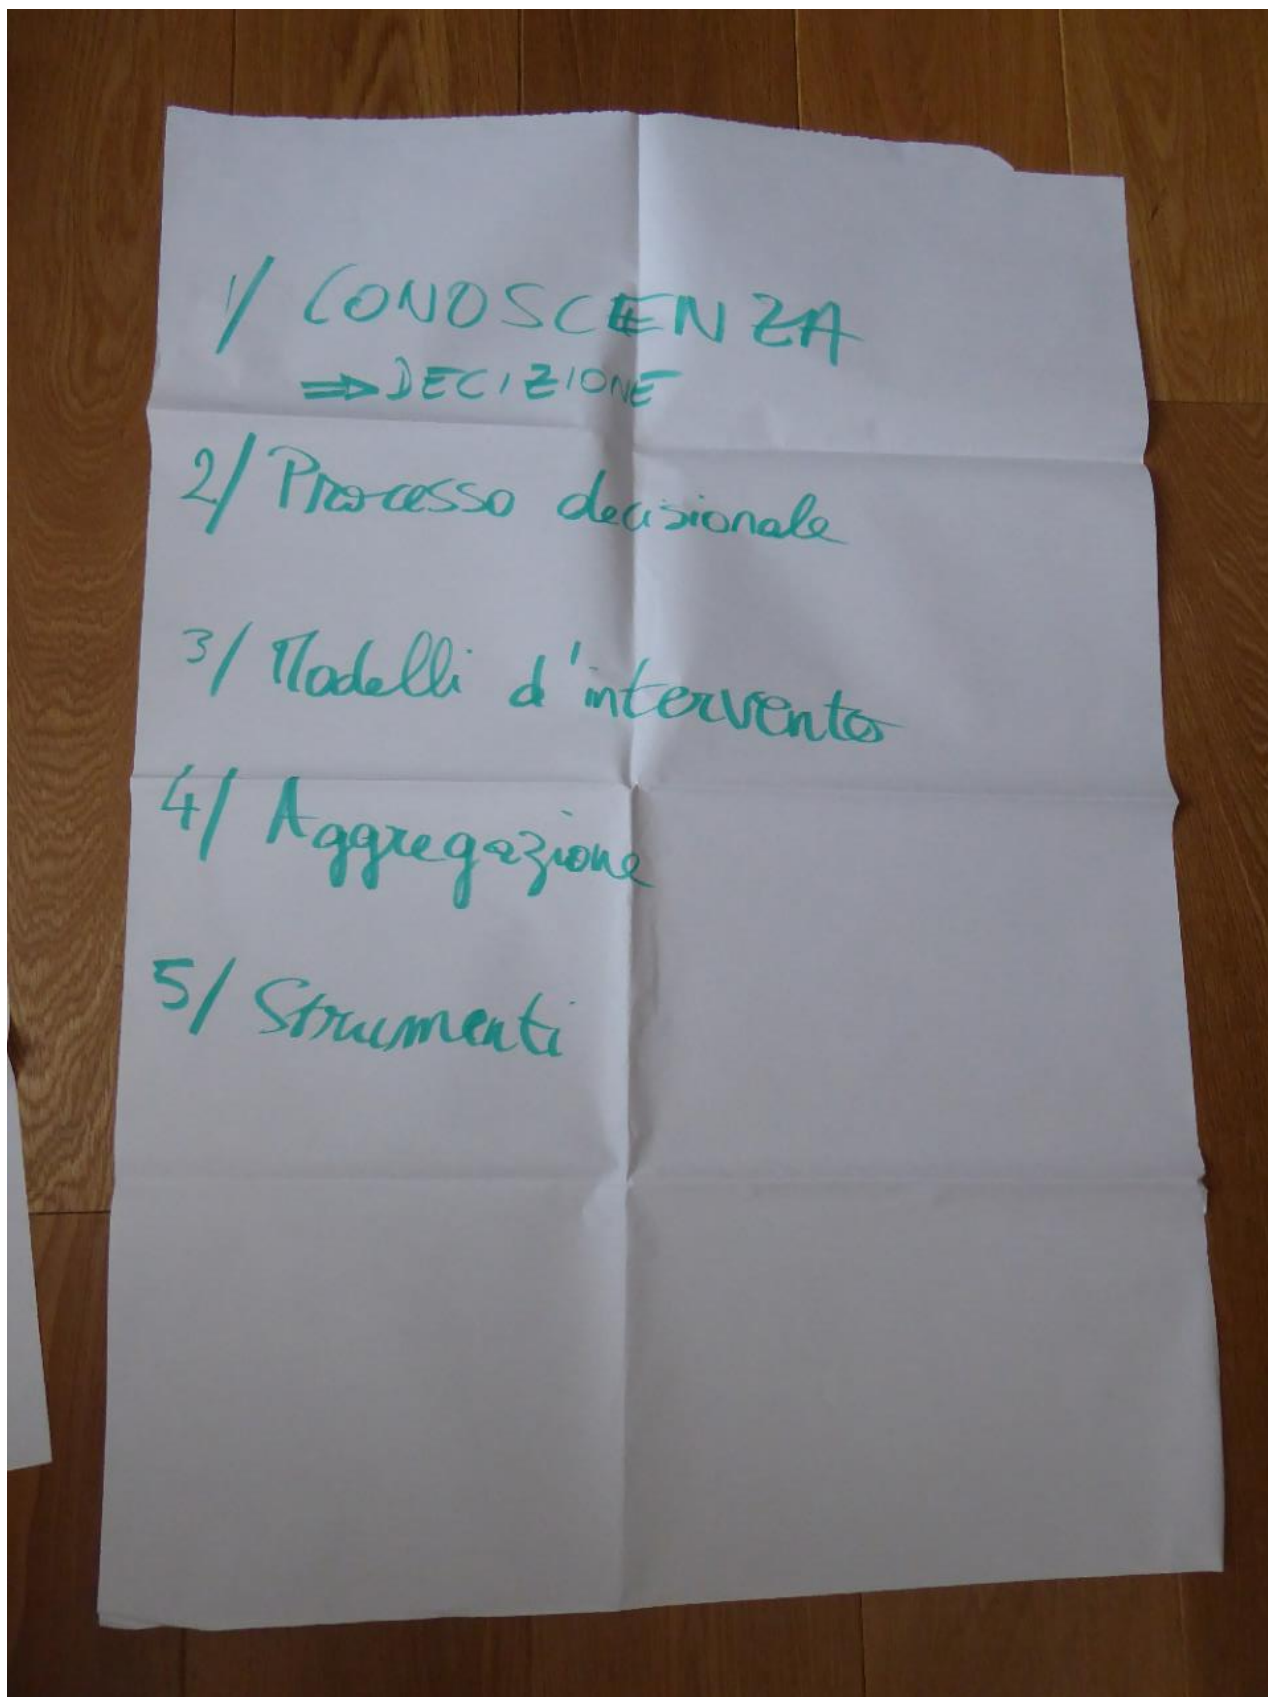 1/ CONOSCENZA
⇒ DECIZIONE
2/ Processo decisionale
3/ Modelli d'intervento
4/ Aggregazione
5/ Strumenti